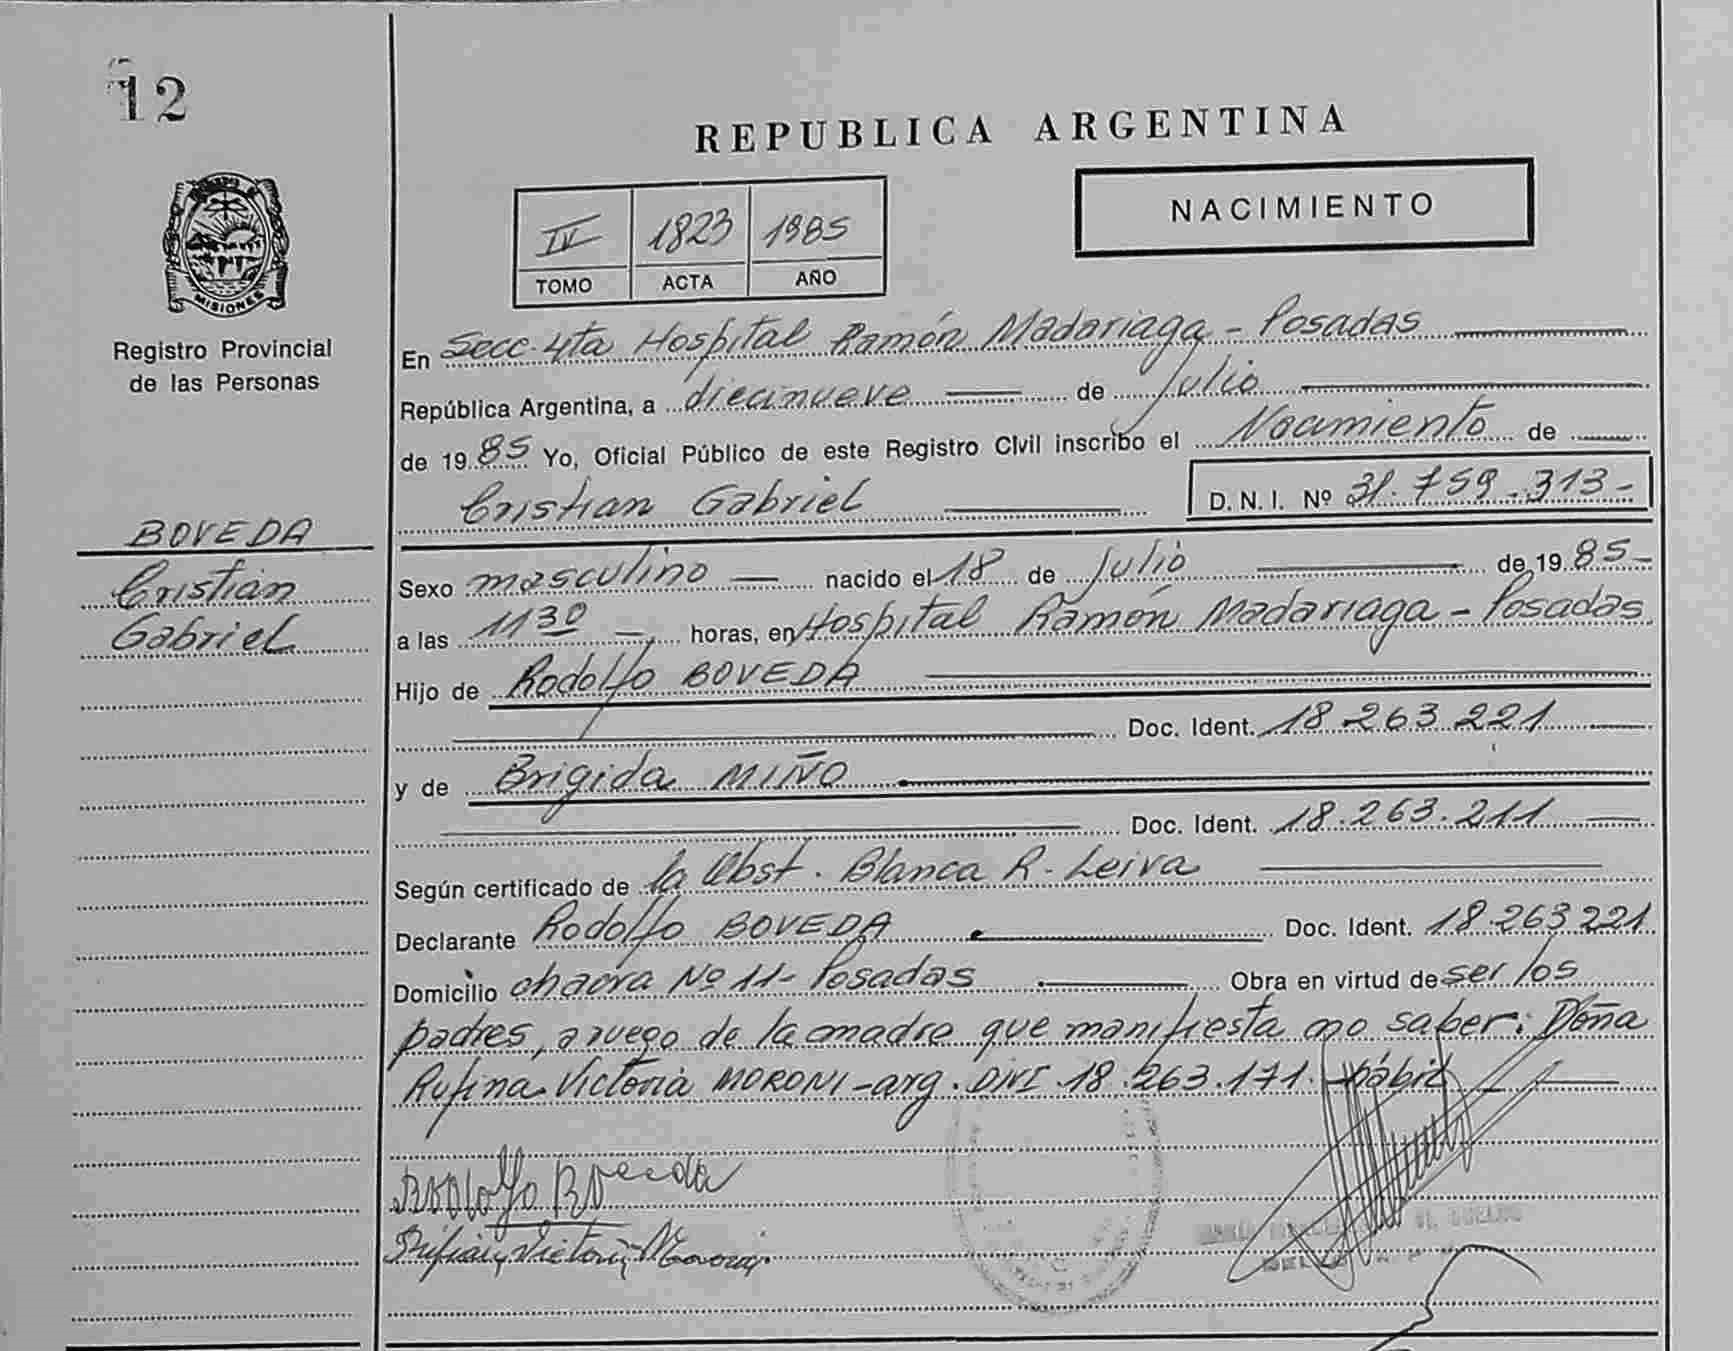 12
REPUBLICA ARGENTINA
NACIMIENTO
IV 1823 1985
TOMO ACTA AÑO
MISIONES
Registro Provincial
de las Personas
En Secc. 4ta Hospital Ramón Madariaga - Posadas
República Argentina, a diecinueve de Julio
de 1985 Yo, Oficial Público de este Registro Civil inscribo el Nacimiento de
Cristian Gabriel D.N.I. Nº 31.759.313-
BOVEDA
Cristian
Gabriel
Sexo masculino nacido el 18 de Julio de 1985-
a las 1130 horas, en Hospital Ramón Madariaga - Posadas.
Hijo de Rodolfo BOVEDA
Doc. Ident. 18.263.221
y de Brigida MIÑO
Doc. Ident. 18.263.211
Según certificado de la Obst. Blanca R. Leiva
Declarante Rodolfo BOVEDA Doc. Ident. 18.263.221.
Domicilio chacra Nº 11- Posadas Obra en virtud de ser los
padres, a ruego de la madre que manifiesta no saber: Doña
Rufina Victoria MORONI - arg. DNI 18.263.171. hábil
Rodolfo Boveda